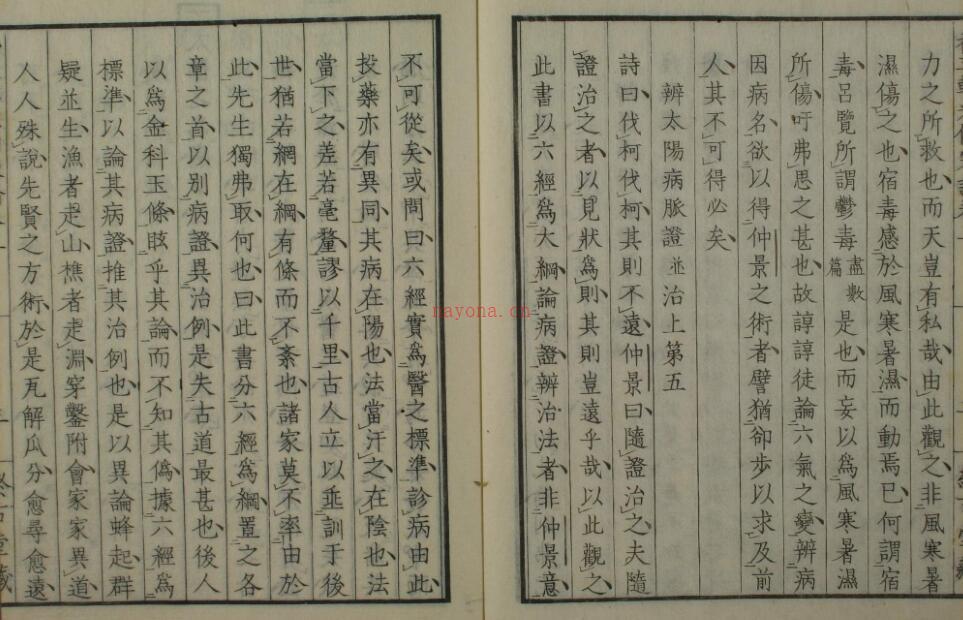 力之所救也而天豈有私哉由此觀之非風寒暑
濕傷之也宿毒感於風寒暑濕而動焉已何謂宿
毒呂覽所謂鬱毒盡數篇是也而妄以爲風寒暑濕
所傷吁弗思之甚也故諄諄徒論六氣之變辨病
因病名欲以得仲景之術者譬猶卻步以求及前
人其不可得必矣
辨太陽病脈證並治上第五
詩曰伐柯伐柯其則不遠仲景曰隨證治之夫隨
證治之者以見狀爲則其則豈遠乎哉以此觀之
此書以六經爲大綱論病證辨治法者非仲景意
不可從矣或問曰六經實爲醫之標準診病由此
投藥亦有異同其病在陽也法當汗之在陰也法
當下之差若毫釐謬以千里古人立以垂訓于後
世猶若網在綱有條而不紊也諸家莫不率由於
此先生獨弗取何也曰此書分六經爲綱置之各
章之首以別病證異治例是失古道最甚也後人
以爲金科玉條眩乎其論而不知其僞據六經爲
標準以論其病證推其治例也是以異論蜂起群
疑並生漁者走山樵者走淵穿鑿附會家家異道
人人殊說先賢之方術於是瓦解瓜分愈尋愈遠
nayona.cn